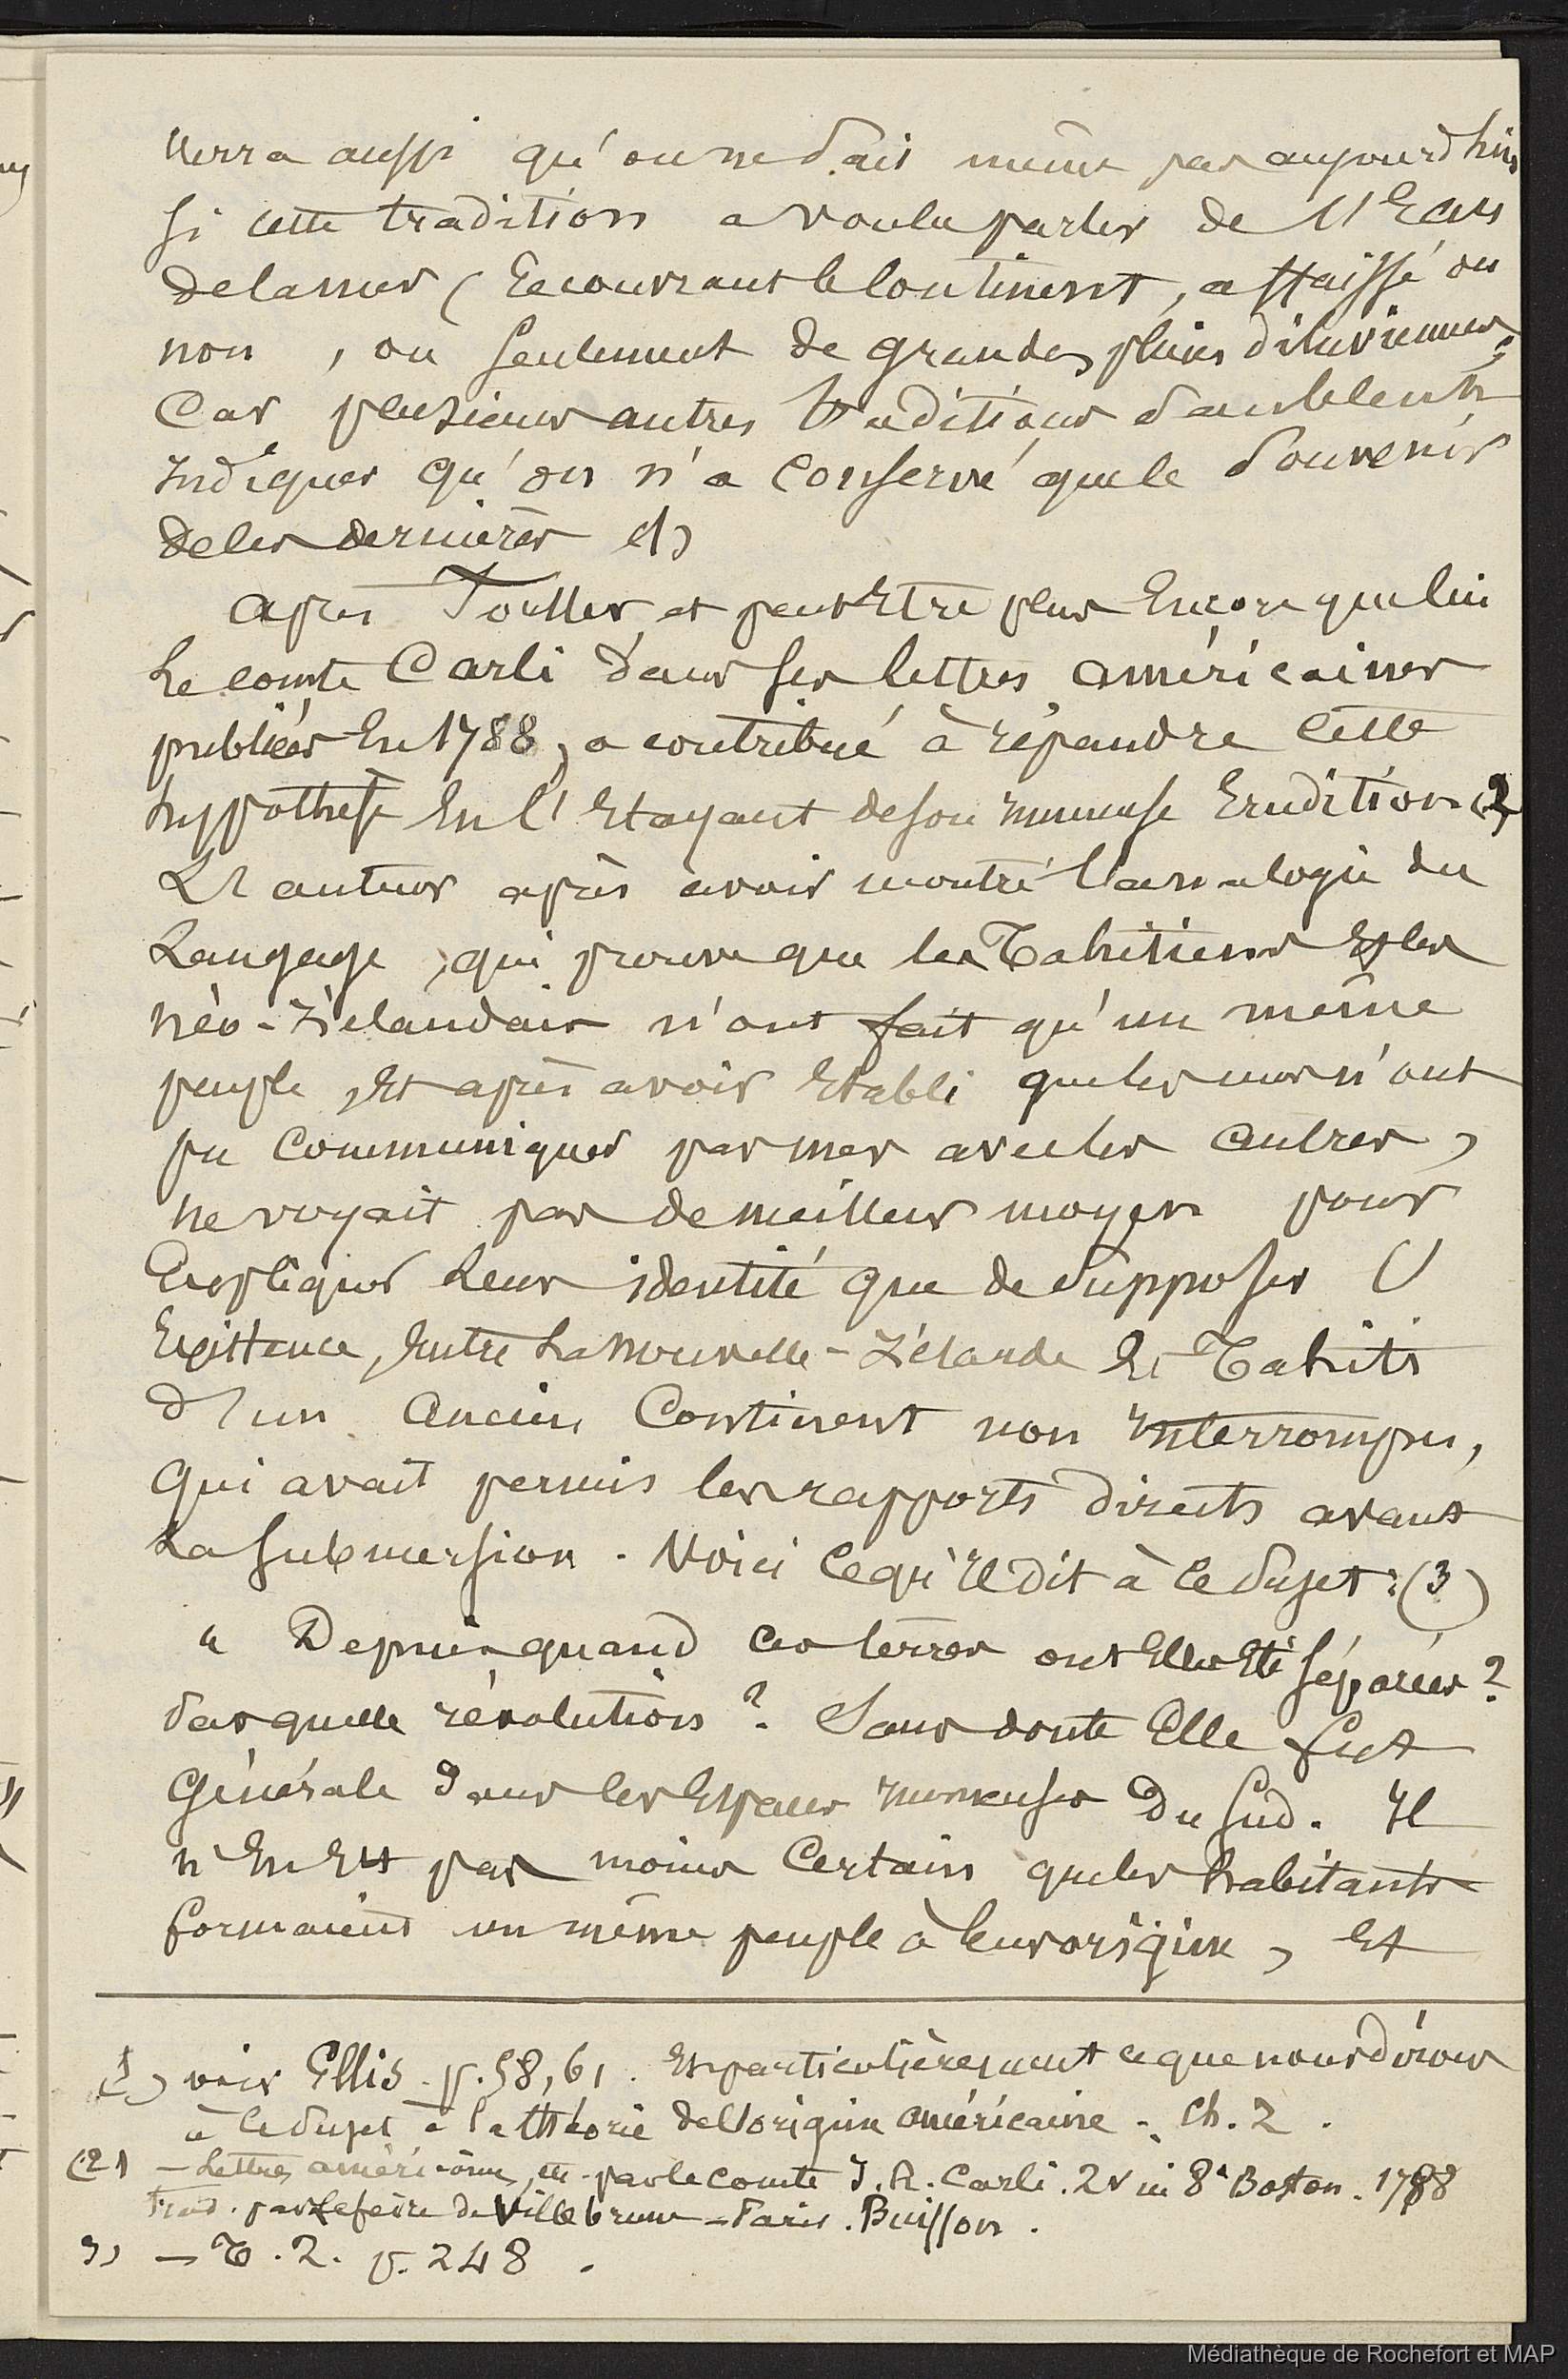 verra aussi qu'on ne sait même pas aujourd'hui
si cette tradition a voulu parler de l'Eau
de la mer (recouvrant le Continent, affaissé ou
non, ou seulement de grandes pluies diluviennes;
Car plusieurs autres traditions semblent
Indiquer qu'on n'a Conservé que le souvenir
de ces dernières (1)
après et peut Etre plus Encore que lui
Le comte Carli dans ses lettres américaines
publiées En 1788, a contribué à répandre Cette
hypothèse En l'Etayant de son immense Erudition (2)
Cet auteur après avoir montré l'analogie du
Langage, qui prouve que les Tahitiens Et les
Néo-Zélandais n'ont fait qu'un même
peuple, Et après avoir Etabli que les uns n'ont
pu Communiquer par mer avec les autres,
ne voyait pas de meilleur moyen pour
Expliquer Leur identité que de supposer l'
Existence, Entre La Nouvelle-Zélande Et Tahiti
d'un Ancien Continent non Interrompu,
Qui avait permis les rapports directs avant
La submersion. Voici ce qu'Il dit à ce sujet : (3)
« Depuis quand ces terres ont Elles Eté séparées ?
par quelle révolution ? Sans doute Elle fut
Générale dans les Espaces immenses Du Sud. Il
n'En Est pas moins Certain que les habitants
formaient un même peuple à leur origine, Et
(1) voir Ellis. p. 58, 61. Et particulièrement ce que nous disons
à ce sujet à la théorie de l'origine américaine. Ch. 2.
(2) – Lettres américaines, etc. par le comte J. R. Carli. 2 v in 8° Boston. 1788
Trad. par Lefevre de Villebrune – Paris. Buisson.
3) – T. 2. p. 248.
Médiathèque de Rochefort et MAP